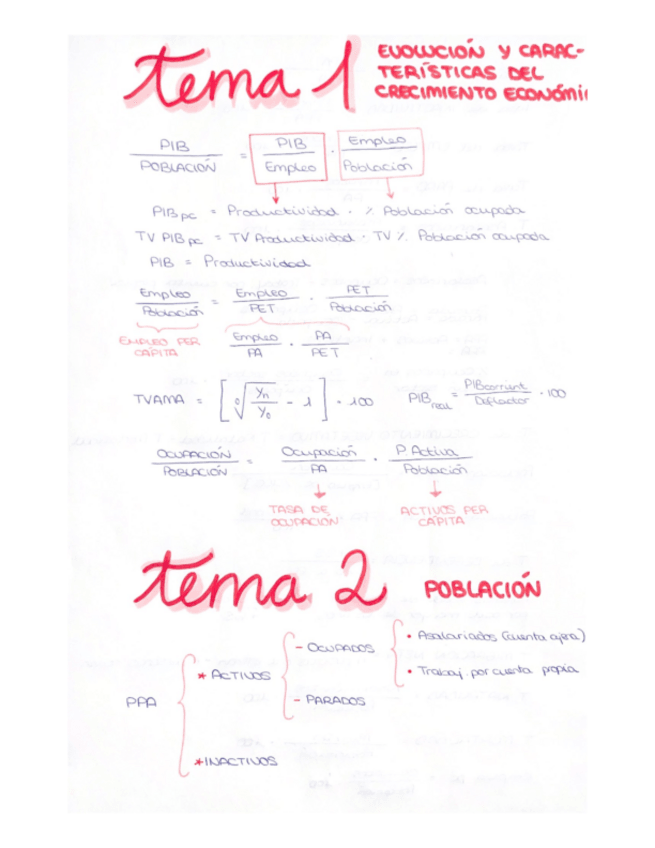 tema 1 EVOLUCIÓN Y CARAC-
TERÍSTICAS DEL
CRECIMIENTO ECONÓMI
PIB / POBLACIÓN = PIB / Empleo · Empleo / Población
PIB pc = Productividad · % Población ocupada
TV PIB pc = TV Productividad · TV % Población ocupada
PIB = Productividad
Empleo / Población = Empleo / PET · PET / Población
EMPLEO PER
CÁPITA
Empleo / PA · PA / PET
TVAMA = [ √ Yn / Yo - 1 ] · 100
PIB real = PIB corrient / Deflactor · 100
OCUPACIÓN / POBLACIÓN = Ocupación / PA · P. Activa / Población
TASA DE
OCUPACIÓN
ACTIVOS PER
CÁPITA
tema 2 POBLACIÓN
PPA
* ACTIVOS
- OCUPADOS
• Asalariados (cuenta ajena)
• Trabaj. por cuenta propia
- PARADOS
* INACTIVOS